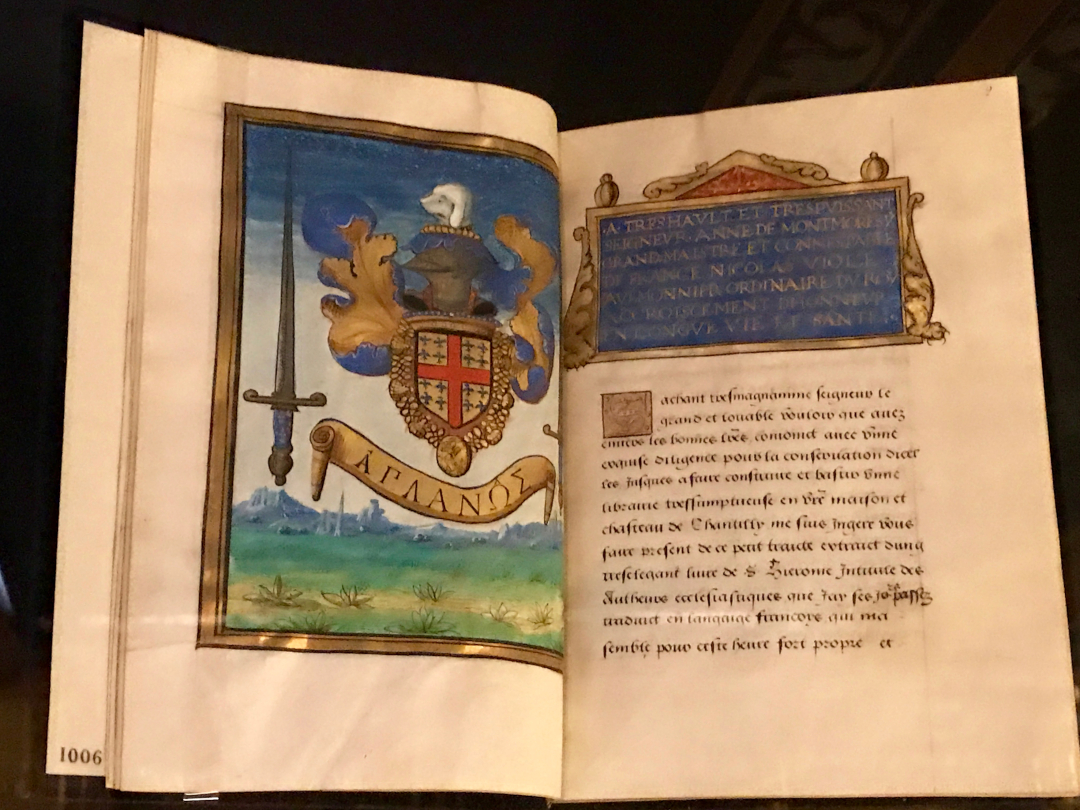 ἈΠΛΑΝΩ͂Σ
A TRESHAVLT ET TRESPVISSANT
SEIGNEVR ANNE DE MONTMORENCY
GRAND MAISTRE ET CONNESTABLE
DE FRANCE NICOLAS VIOLE
AVLMONNIER ORDINAIRE DV ROY
ACCROISCEMENT DHONNEVR
ET LONGVE VIE ET SANTE
achant tresmagnanime seigneur le
grand et louable vouloir que auez
enuers les bonnes lr̃es comoinct auec vnne
exquise diligence pour la conseruation dicel
les Jusques a faire construire et bastir vnne
librairie tressumptueuse en vr̃e maison et
chasteau de Chantilly me suis Ingere vous
faire present de ce petit traicte extraict dung
treselegant liure de S Hierome Intitule des
Autheurs ecclesiastiques que Jay ses passez
traduict en langaige francoys qui ma
semble pour ceste heure fort propre et
1006